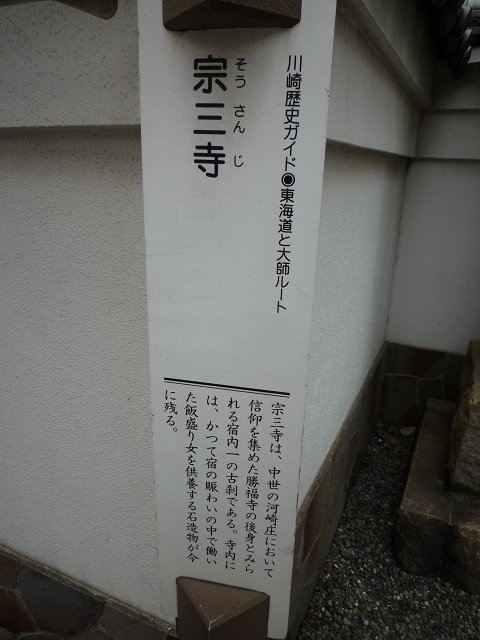 川崎歴史ガイド◉東海道と大師ルート
宗三寺
そうさんじ
宗三寺は、中世の河崎庄において
信仰を集めた勝福寺の後身とみら
れる宿内一の古刹である。寺内に
は、かつて宿の賑わいの中で働い
た飯盛り女を供養する石造物が今
に残る。